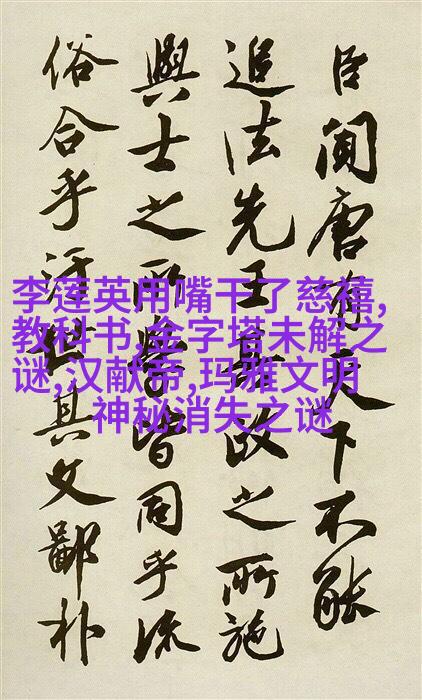 臣聞唐有天下不能
追法先王政之所施
興士之所學皆同乎流
俗合乎汙世其文鄙朴
李莲英用嘴干了慈禧,
教科书,金字塔未解之
谜,汉献帝,玛雅文明
神秘消失之谜